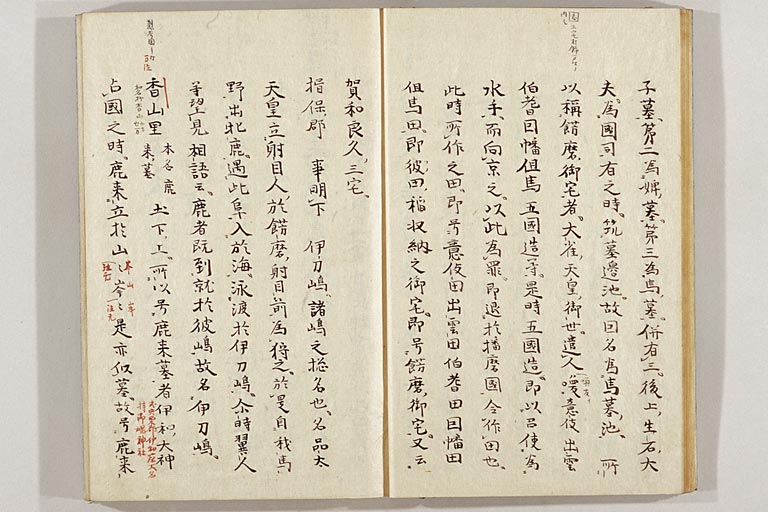 子墓第二為婢墓第三為馬墓併有三後上生石大
夫為國司有之時筑墓邊池故因名為馬墓池 所
以稱餝磨御宅者大雀天皇御世遣人喚意伎出雲
伯耆因幡但馬五國造等是時五國造即以召使為
水手而向京之以此為罪即退於播磨國令作田也
此時所作之田即号意伎田出雲田伯耆田因幡田
但馬田即彼田稲収納之御宅即号餝磨御宅又云
賀和良久三宅
揖保郡 事明下 伊刀嶋諸嶋之捴名也名品太
天皇立射目人於餝磨射目前為狩之於是自我馬
野出牝鹿過此阜入於海泳渡於伊刀嶋尓時翼人
等望見相語云鹿者既到就於彼嶋故名伊刀嶋
香山里 本名鹿来墓 土下上 所以号鹿来墓者伊和大神
占國之時鹿来立於山々岑々是亦似墓故号鹿来